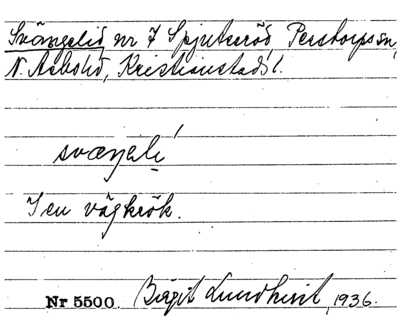 Svängelid nr 7 Spjutseröd Perstorps sn,
N. Åsbo hd, Kristianstads l.
svæŋelí
I en vägkrök.
Nr 5500. Birgit Lundkvist, 1936.